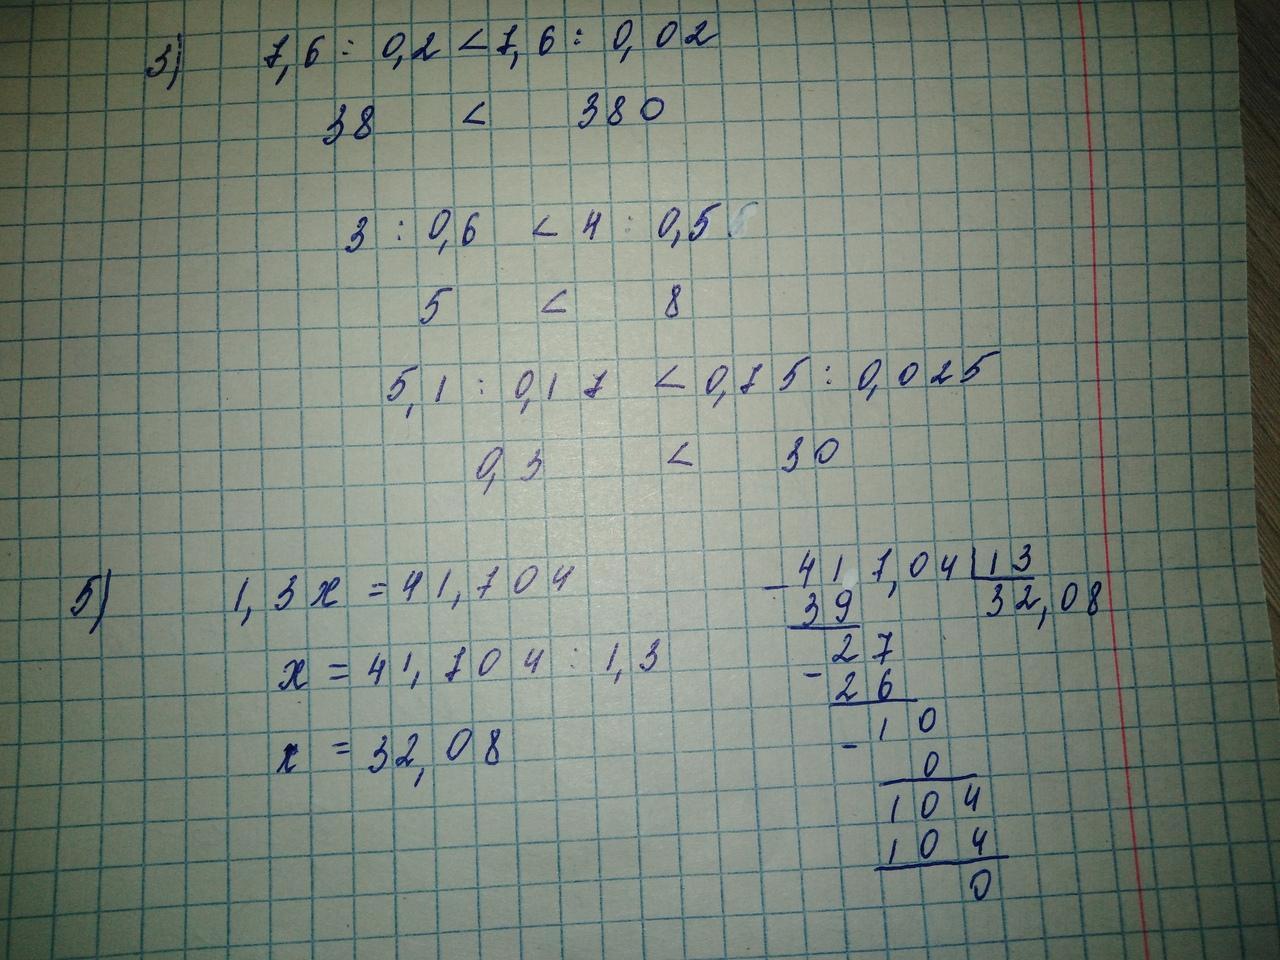 3) 7,6 : 0,2 < 7,6 : 0,02
38 < 380
3 : 0,6 < 4 : 0,5
5 < 8
5,1 : 0,17 < 0,75 : 0,025
0,3 < 30
5) 1,3x = 41,704
x = 41,704 : 1,3
x = 32,08
- 417,04 | 13
39 32,08
- 27
26
- 10
0
104
104
0